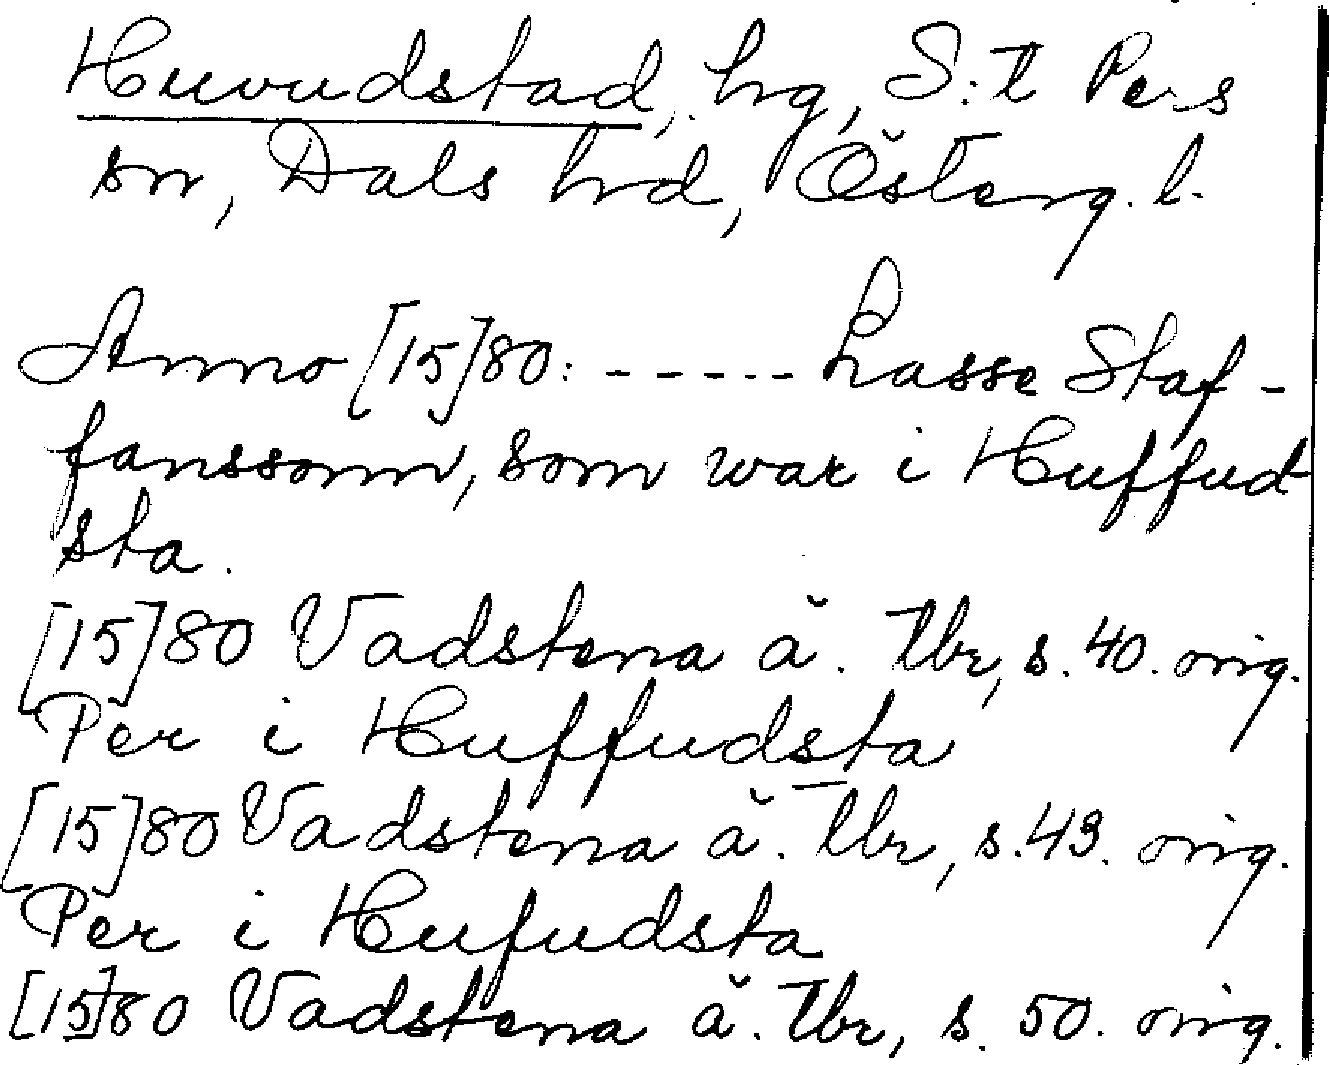 Huvudstad, hg, S:t Pers
sn, Dals hd, Österg. l.
Anno [15]80: ----- Lasse Staf-
fanssonn, som war i Huffud
sta.
[15]80 Vadstena ä. tbr, s. 40. orig.
Per i Huffudsta
[15]80 Vadstena ä. tbr, s. 43. orig.
Per i Hufudsta
[15]80 Vadstena ä. tbr, s. 50. orig.